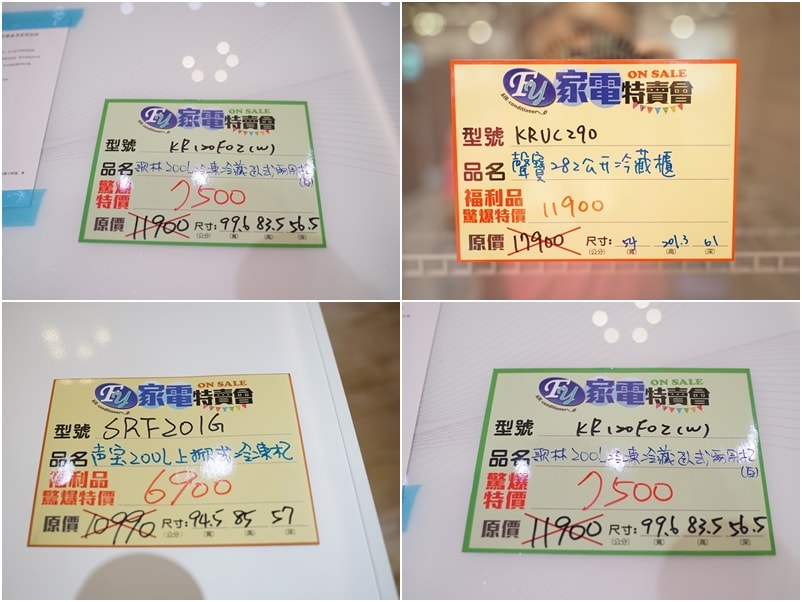 Fy 家電 ON SALE 特賣會
Air conditioner
型號 KR120F02(W)
品名 歌林200L冷凍冷藏臥式兩用柜(白)
驚爆特價 7500
原價 11900 尺寸: 99.6 83.5 56.5
(公分) (寬) (高) (深)
Fy 家電 ON SALE 特賣會
Air conditioner
型號 KRUC290
品名 聲寶282公升冷藏櫃
福利品
驚爆特價 11900
原價 17900 尺寸: 54 201.3 61
(公分) (寬) (高) (深)
Fy 家電 ON SALE 特賣會
Air conditioner
型號 SRF201G
品名 声宝200L上掀式冷凍柜
福利品
驚爆特價 6900
原價 10990 尺寸: 94.5 85 57
(公分) (寬) (高) (深)
Fy 家電 ON SALE 特賣會
Air conditioner
型號 KR120F02(W)
品名 歌林200L冷凍冷藏臥式兩用柜(白)
驚爆特價 7500
原價 11900 尺寸: 99.6 83.5 56.5
(公分) (寬) (高) (深)